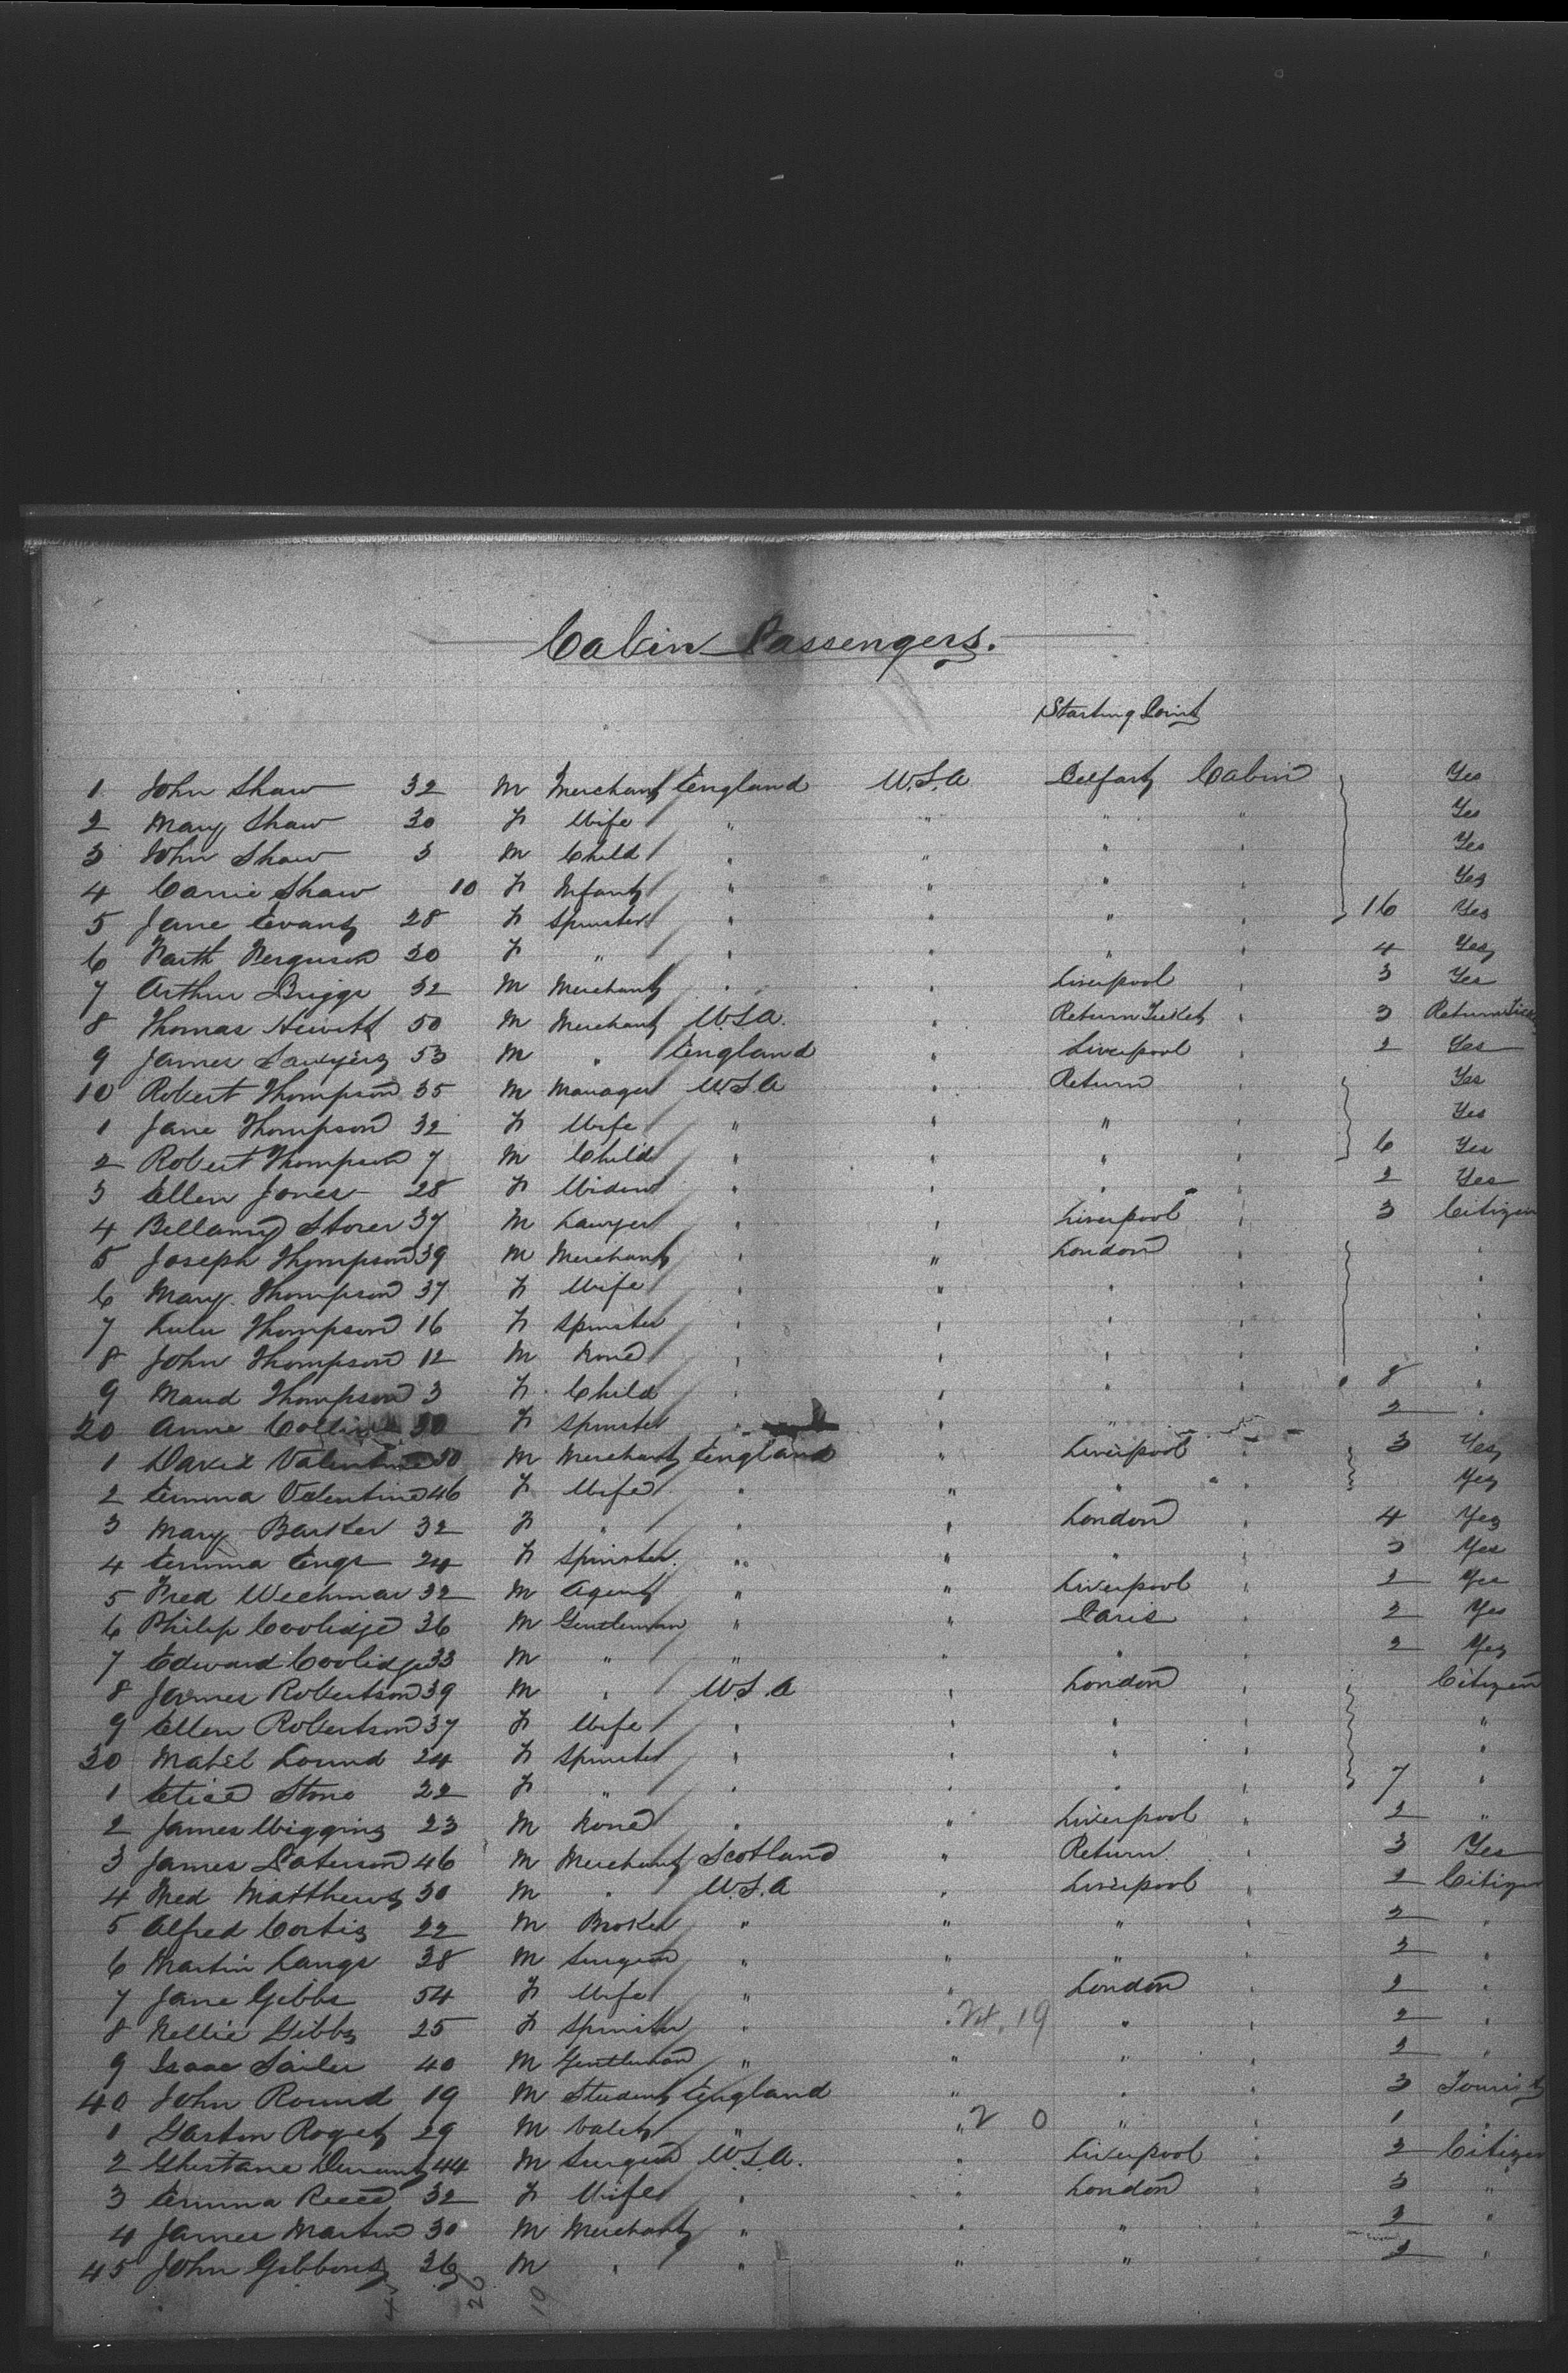 Cabin Passengers.
Starting Point
1 John Shaw 32 M Merchant England U.S.A Belfast Cabin Yes
2 Mary Shaw 30 F Wife " " " " Yes
3 John Shaw 3 M Child " " " " Yes
4 Carrie Shaw 10 F Infant " " " Yes
5 Jane Evans 28 F Spinster " " " " 16 Yes
6 Ferguson 30 F " " " " " 4 Yes
7 Arthur Briggs 32 M Merchant " " Liverpool " 3 Yes
8 Thomas Hewitt 50 M Merchant U.S.A. " Return Ticket " 3 Return Ticket
9 James Sawyers 53 M " England " Liverpool " 2 Yes
10 Robert Thompson 35 M Manager U.S.A " Return " Yes
1 Jane Thompson 32 F Wife " " " " Yes
2 Robert Thompson 7 M Child " " " " 6 Yes
3 Ellen Jones 28 F Widow " " " " 2 Yes
4 Bellamy Storer 37 M Lawyer " " Liverpool " 3 Citizen
5 Joseph Thompson 39 M Merchant " " London " "
6 Mary Thompson 37 F Wife " " " " "
7 Lulu Thompson 16 F Spinster " " " " "
8 John Thompson 12 M None " " " " "
9 Maud Thompson 3 F Child " " " " 8 "
20 Anne Collins 30 F Spinster " " " 2 "
1 David Valentine 50 M Merchant England " Liverpool " 3 Yes
2 Emma Valentine 46 F Wife " " " " Yes
3 Mary Barker 32 F " " " London " 4 Yes
4 Emma Engs 24 F Spinster " " " " 3 Yes
5 Fred Wechmar 32 M Agent " " Liverpool " 2 Yes
6 Philip Coolidge 36 M Gentleman " " Paris " 2 Yes
7 Edward Coolidge 33 M " " " " " 2 Yes
8 James Robertson 39 M " U.S.A " London " Citizen
9 Ellen Robertson 37 F Wife " " " " "
30 Mabel Lound 24 F Spinster " " " " "
1 Stone 22 F " " " " " 7 "
2 James Wiggins 23 M None " " Liverpool " 2 "
3 James Paterson 46 M Merchant Scotland " Return " 3 Yes
4 Matthews 30 M " U.S.A " Liverpool " 2 Citizen
5 Alfred Cortis 22 M Broker " " " " 2 "
6 Martin Lange 38 M Surgeon " " " " 2 "
7 Jane Gibbs 54 F Wife " " London " 2 "
8 Nellie Gibbs 25 F Spinster " " 19 " " 2 "
9 Isaac Sailer 40 M Gentleman " " " " 2 "
40 John Round 19 M Student England " " " 3 Tourist
1 Gaston Roget 29 M Valet " " 2 0 " " 1 "
2 Durant 44 M Surgeon U.S.A. " Liverpool " 2 Citizen
3 Emma Reed 32 F Wife " " London " 3 "
4 James Martin 30 M Merchant " " " " 2 "
45 John Gibbons 36 M " " " " " 2 "
26 10